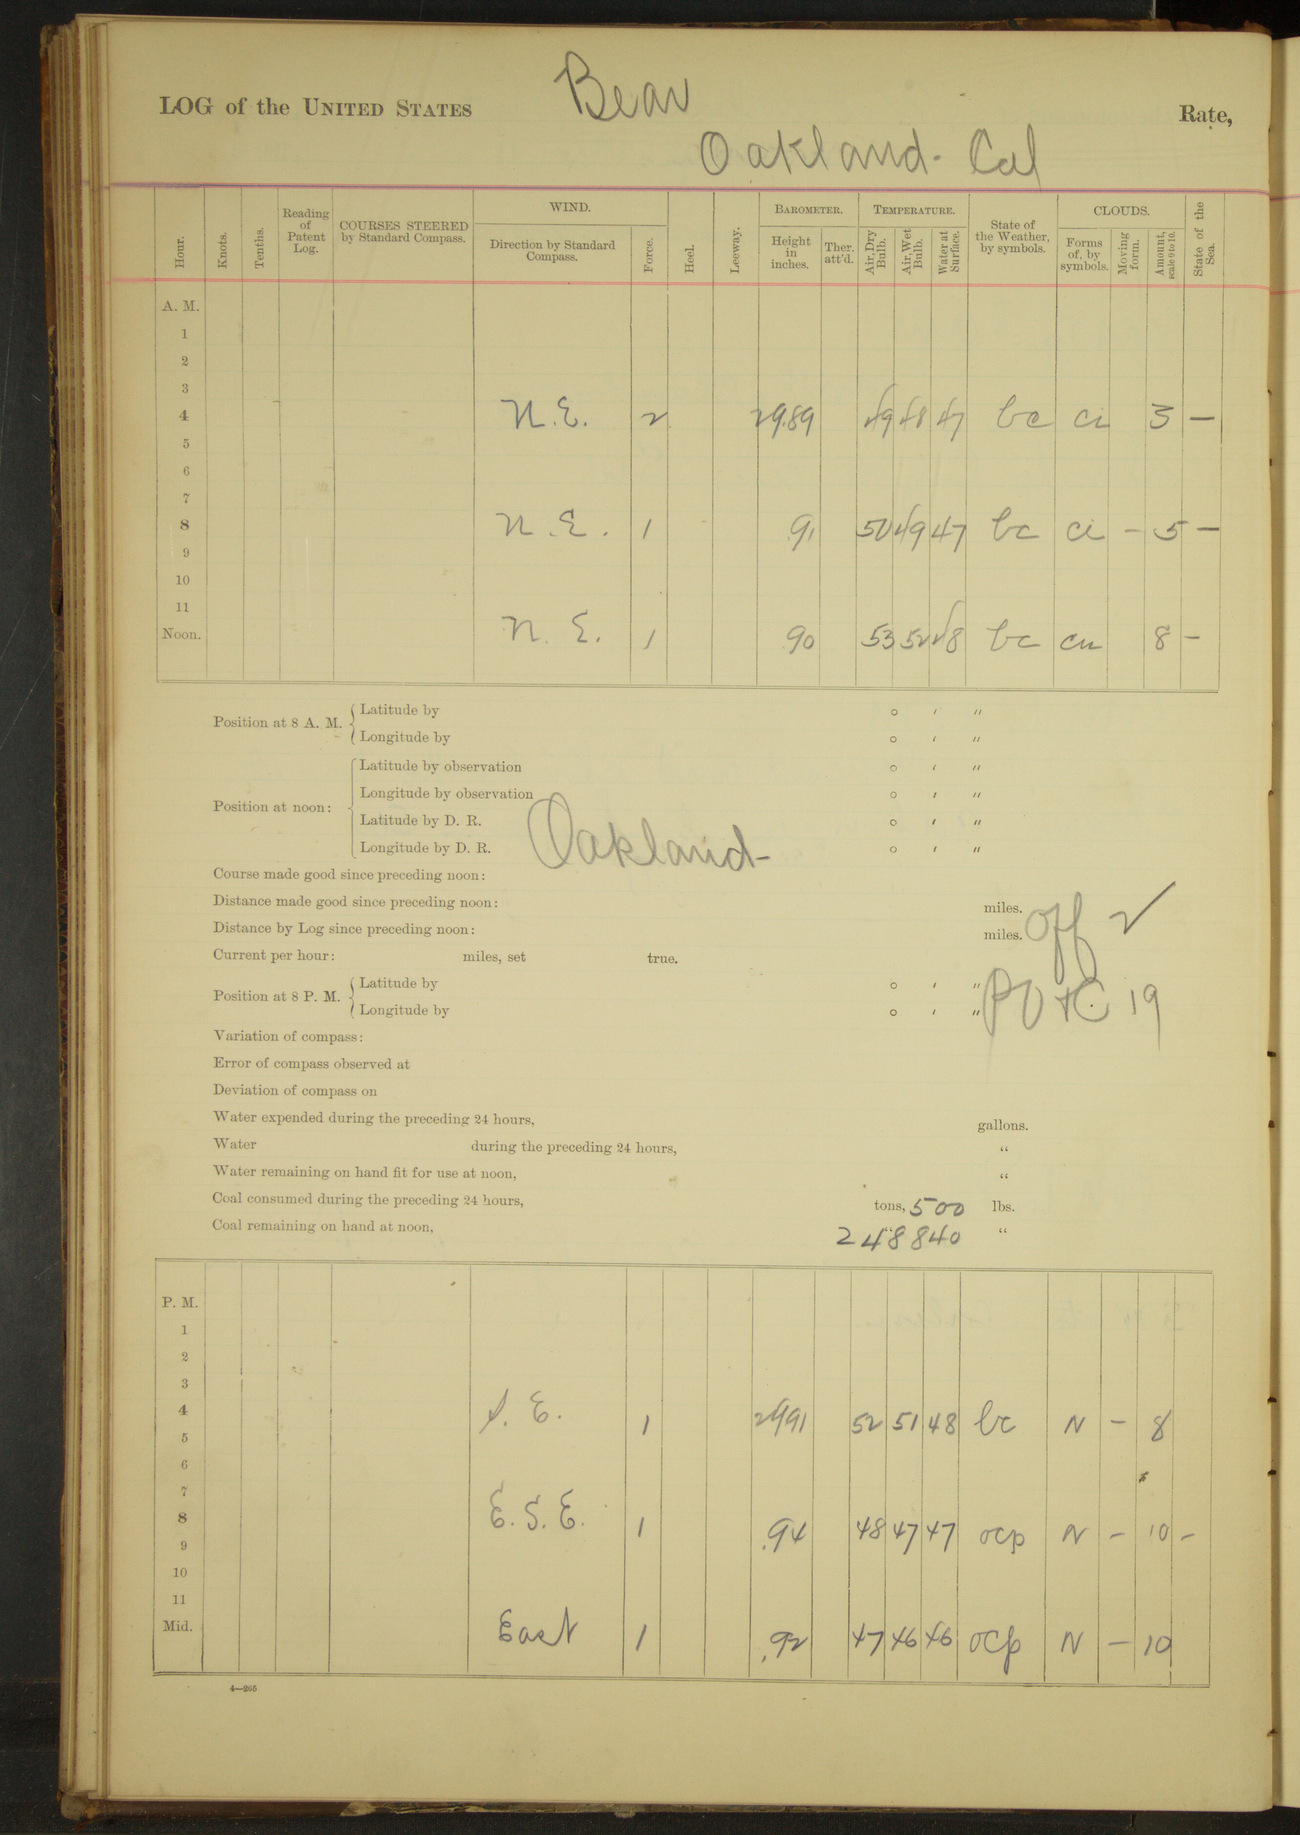 LOG of the UNITED STATES Bear Rate,
Oakland - Cal
Hour. Knots. Tenths. Reading of Patent Log. COURSES STEERED by Standard Compass. WIND. Direction by Standard Compass. Force. Heel. Leeway. BAROMETER. Height in inches. Ther. att'd. TEMPERATURE. Air, Dry Bulb. Air, Wet Bulb. Water at Surface. State of the Weather, by symbols. CLOUDS. Forms of, by symbols. Moving form. Amount, scale 0 to 10. State of the Sea.
A. M.
1
2
3
4 N.E. 2 29.89 49 48 47 bc ci 3 —
5
6
7
8 N.E. 1 .91 50 49 47 bc ci — 5 —
9
10
11
Noon. N.E. 1 .90 53 52 48 bc cu 8 —
Position at 8 A. M. Latitude by ° ′ ″
Longitude by ° ′ ″
Position at noon: Latitude by observation ° ′ ″
Longitude by observation ° ′ ″
Latitude by D. R. ° ′ ″
Longitude by D. R. Oakland - ° ′ ″
Course made good since preceding noon:
Distance made good since preceding noon: miles.
Distance by Log since preceding noon: miles. Off 2
Current per hour: miles, set true.
Position at 8 P. M. Latitude by ° ′ ″
Longitude by ° ′ ″ PO+C 19
Variation of compass:
Error of compass observed at
Deviation of compass on
Water expended during the preceding 24 hours, gallons.
Water during the preceding 24 hours, “
Water remaining on hand fit for use at noon, “
Coal consumed during the preceding 24 hours, tons, 500 lbs.
Coal remaining on hand at noon, 248 “ 840 “
P. M.
1
2
3
4 S.E. 1 29.91 52 51 48 bc N — 8
5
6
7
8 E.S.E. 1 .94 48 47 47 ocp N — 10 —
9
10
11
Mid. East 1 .92 47 46 46 ocp N — 10
4—265